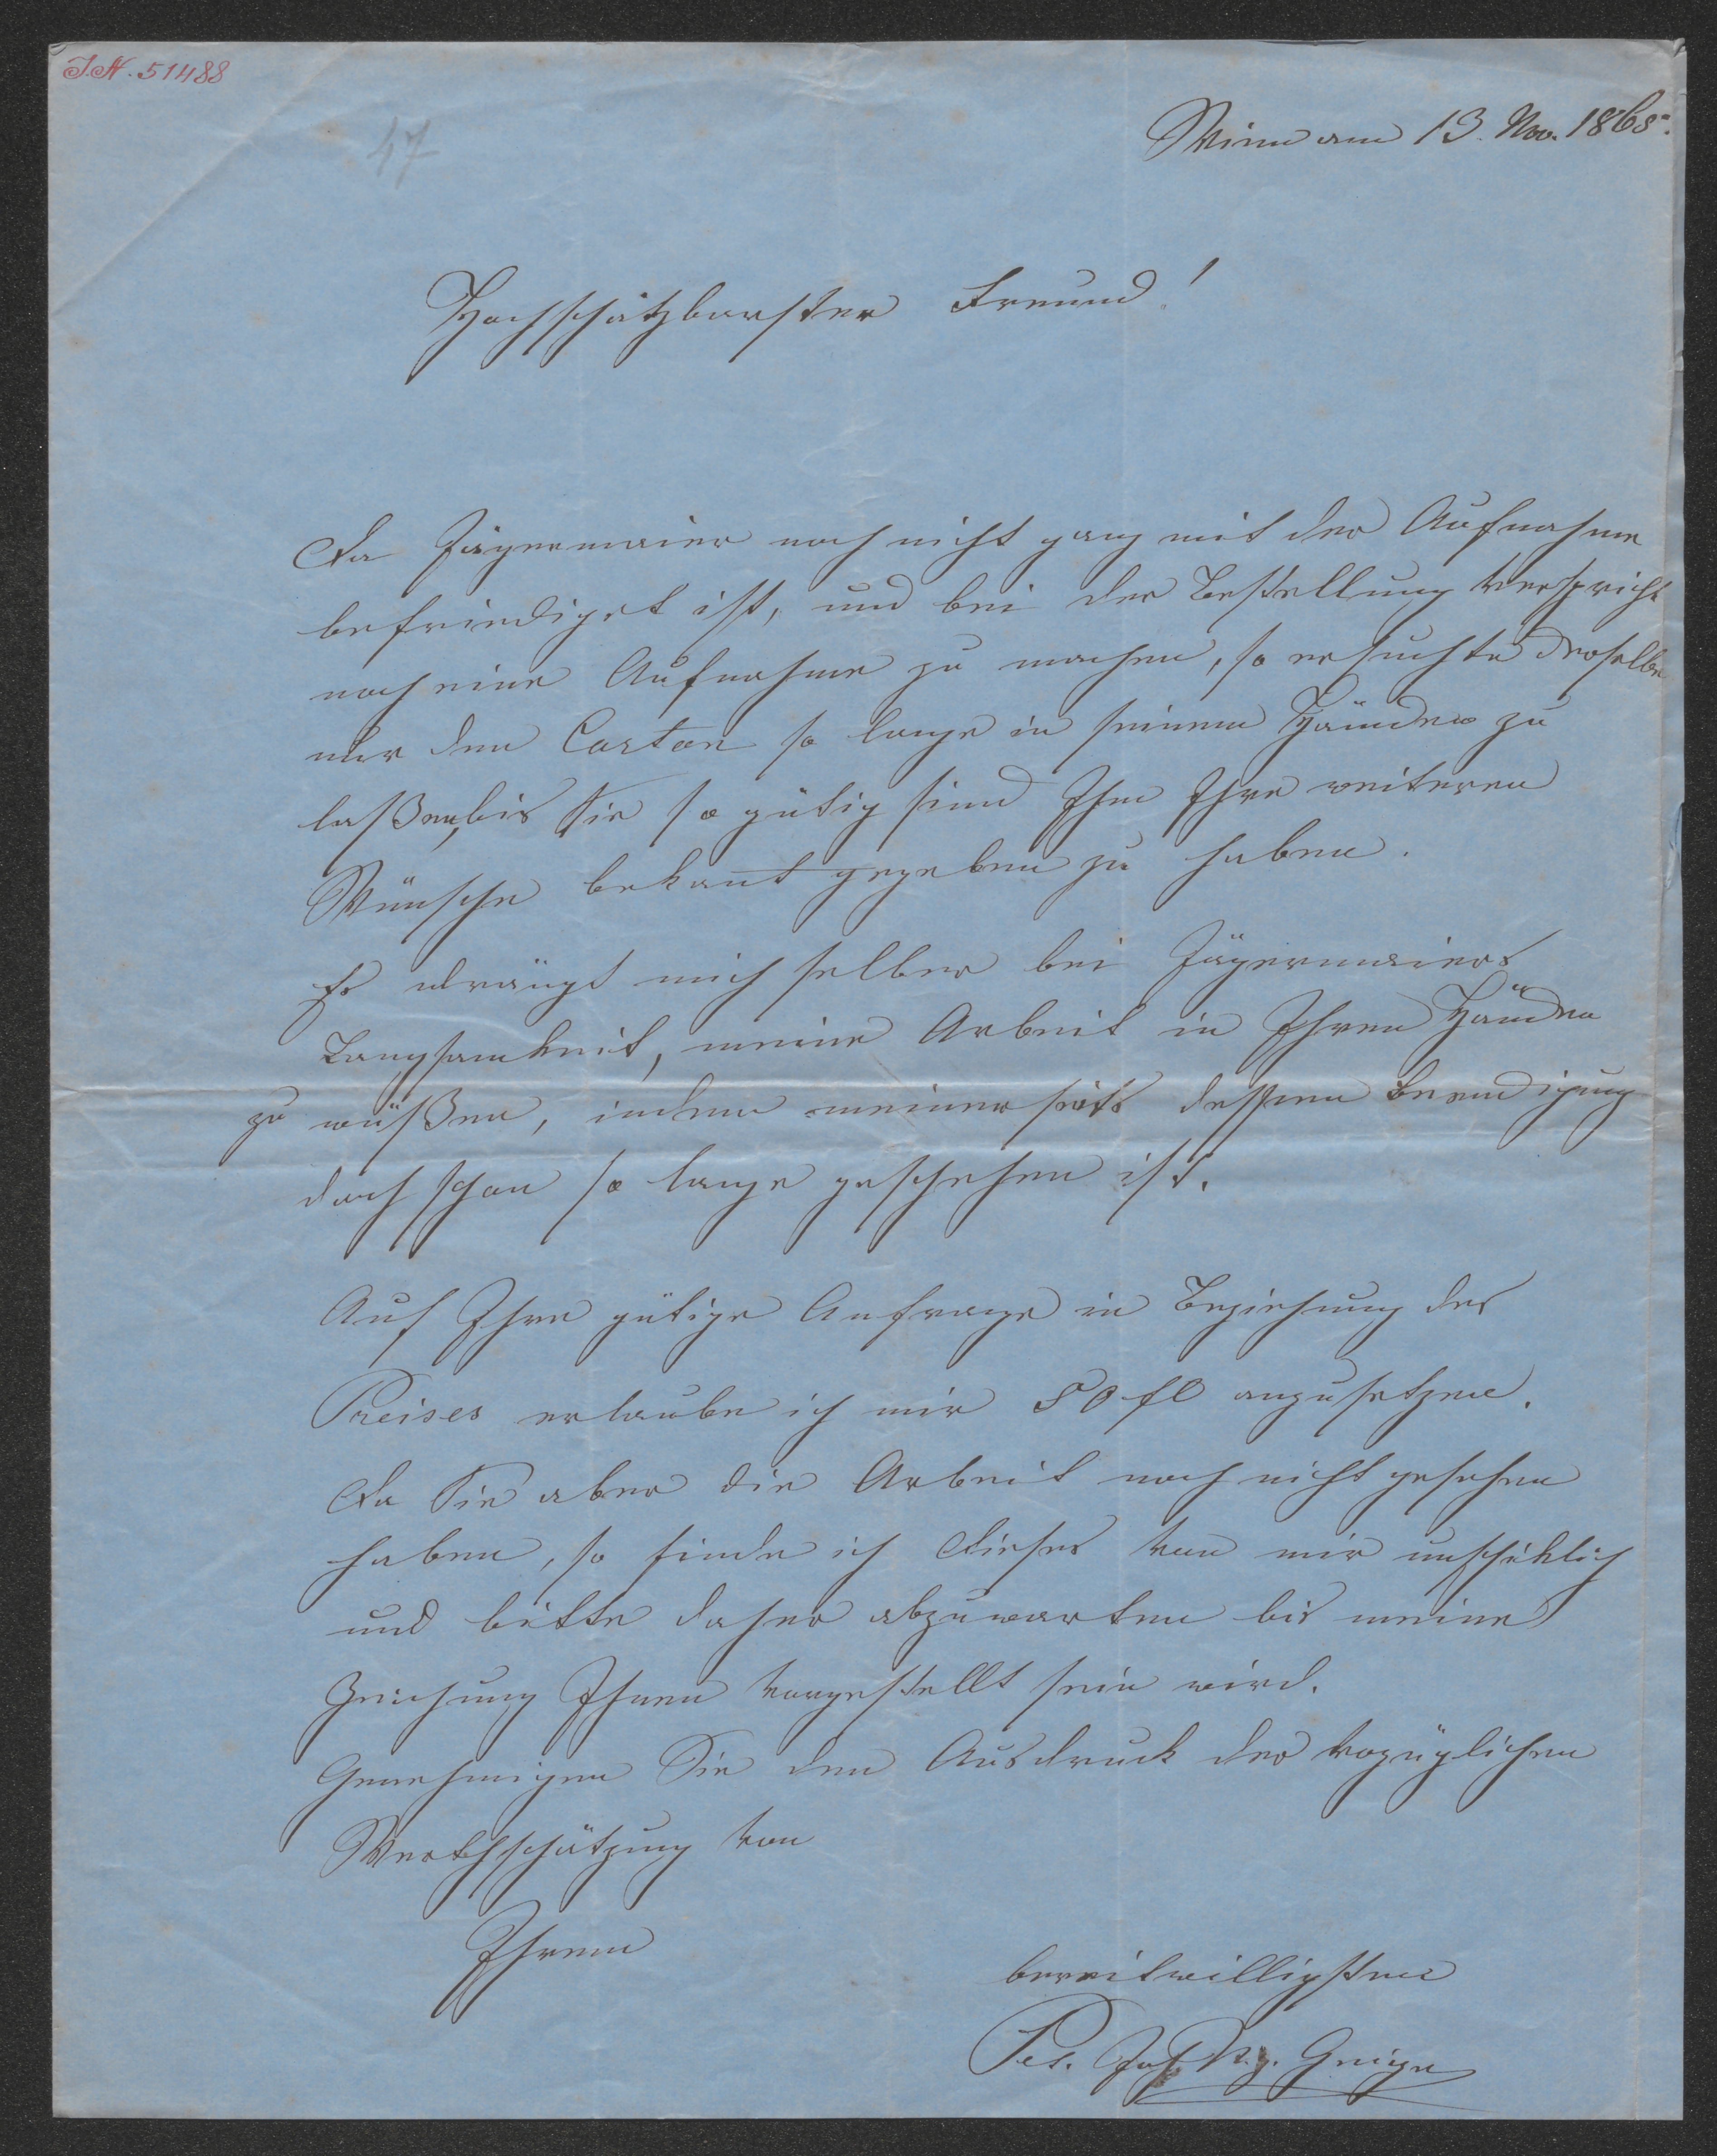 J.N. 51488
47
Wien am 13. Nov. 1865.
Hochschätzbarster Freund!
Da Jägermaier noch nicht ganz mit der Aufnahme
befriediget ist, und bei der Bestellung verspricht
noch eine Aufnahme zu machen, so ersuchte derselbe
mir den Carton so lange in seinen Händen zu
laßen, bis Sie so gütig sind Ihm Ihre weiteren
Wünsche bekant gegeben zu haben.
Es drängt mich selber bei Jägermaiers
Langsamkeit, meine Arbeit in Ihren Händen
zu wißen, indem meinerseits dessen Beendigung
doch schon so lange geschehen ist.
Auf Ihre gütige Anfrage in Beziehung des
Preises erlaube ich mir 50 fl anzusetzen.
Da Sie aber die Arbeit noch nicht gesehen
haben, so finde ich dieses von mir unschiklich
und bitte daher abzuwarten bis meine
Zeichnung Ihnen vorgestellt sein wird.
Genehmigen Sie den Ausdruck der vozüglichen
Werthschätzung von
Ihrem
bereitwilligsten
Pet. Joh. N. Geiger